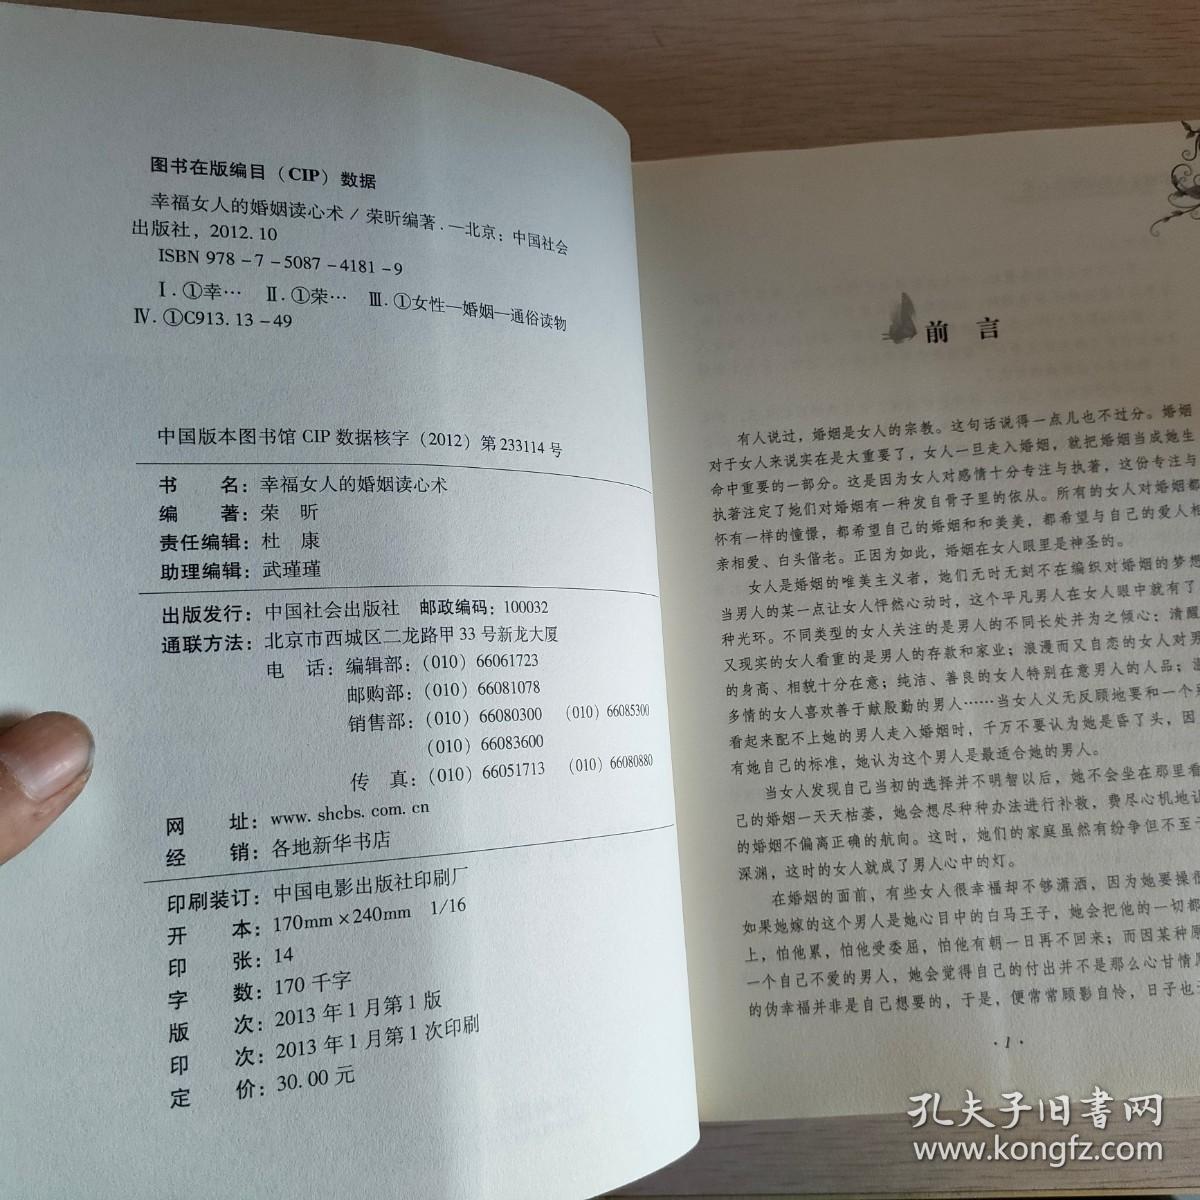 图书在版编目（CIP）数据
幸福女人的婚姻读心术 / 荣昕编著. —北京：中国社会
出版社，2012.10
ISBN 978－7－5087－4181－9
Ⅰ.①幸… Ⅱ.①荣… Ⅲ.①女性—婚姻—通俗读物
Ⅳ.①C913.13－49
中国版本图书馆 CIP 数据核字（2012）第 233114 号
书 名：幸福女人的婚姻读心术
编 著：荣 昕
责任编辑：杜 康
助理编辑：武瑾瑾
出版发行：中国社会出版社 邮政编码：100032
通联方法：北京市西城区二龙路甲 33 号新龙大厦
电 话：编辑部：（010）66061723
邮购部：（010）66081078
销售部：（010）66080300 （010）66085300
（010）66083600
传 真：（010）66051713 （010）66080880
网 址：www. shcbs. com. cn
经 销：各地新华书店
印刷装订：中国电影出版社印刷厂
开 本：170mm×240mm 1/16
印 张：14
字 数：170 千字
版 次：2013 年 1 月第 1 版
印 次：2013 年 1 月第 1 次印刷
定 价：30.00 元
前 言
有人说过，婚姻是女人的宗教。这句话说得一点儿也不过分。婚姻
对于女人来说实在是太重要了，女人一旦走入婚姻，就把婚姻当成她生
命中重要的一部分。这是因为女人对感情十分专注与执著，这份专注与
执著注定了她们对婚姻有一种发自骨子里的依从。所有的女人对婚姻都
怀有一样的憧憬，都希望自己的婚姻和和美美，都希望与自己的爱人相
亲相爱、白头偕老。正因为如此，婚姻在女人眼里是神圣的。
女人是婚姻的唯美主义者，她们无时无刻不在编织对婚姻的梦想
当男人的某一点让女人怦然心动时，这个平凡男人在女人眼中就有了
种光环。不同类型的女人关注的是男人的不同长处并为之倾心：清醒
又现实的女人看重的是男人的存款和家业；浪漫而又自恋的女人对男
的身高、相貌十分在意；纯洁、善良的女人特别在意男人的人品；
多情的女人喜欢善于献殷勤的男人……当女人义无反顾地要和一个
看起来配不上她的男人走入婚姻时，千万不要认为她是昏了头，因
有她自己的标准，她认为这个男人是最适合她的男人。
当女人发现自己当初的选择并不明智以后，她不会坐在那里看
己的婚姻一天天枯萎，她会想尽种种办法进行补救，费尽心机地让
的婚姻不偏离正确的航向。这时，她们的家庭虽然有纷争但不至于
深渊，这时的女人就成了男人心中的灯。
在婚姻的面前，有些女人很幸福却不够潇洒，因为她要操
如果她嫁的这个男人是她心目中的白马王子，她会把他的一切都
上，怕他累，怕他受委屈，怕他有朝一日再不回来；而因某种原
一个自己不爱的男人，她会觉得自己的付出并不是那么心甘情
的伪幸福并非是自己想要的，于是，便常常顾影自怜，日子也
·1·
孔夫子旧书网
www.kongfz.com